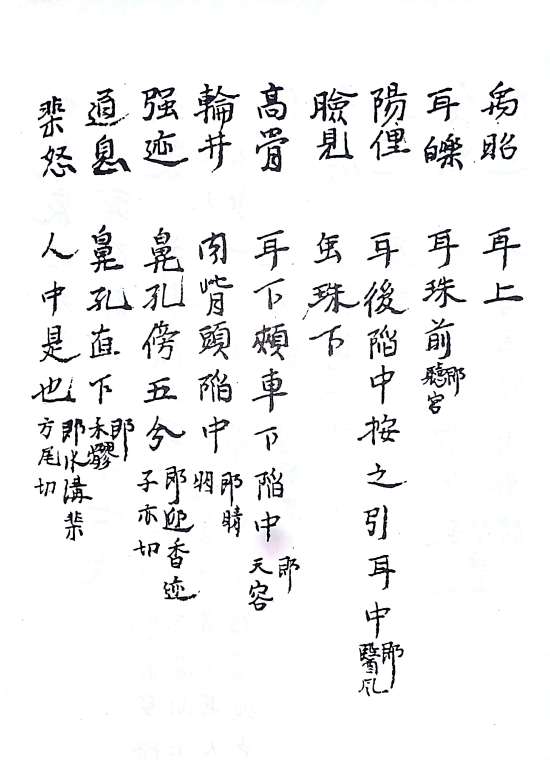 禹昭 耳上
耳皪 耳珠前 即聽宮
陽俚 耳後陷中按之引耳中 即醫風
瞼見 缶珠下
高骨 耳下頰車下陷中 即天容
輪井 內眥頭陷中 即睛明
强迹 鼻孔傍五分 即迎香迹子亦切
道息 鼻孔直下 即禾髎
棐怒 人中是也 即水溝棐方尾切